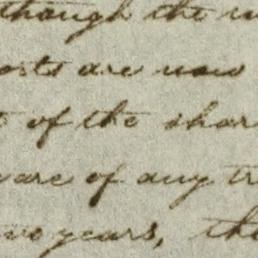 though the
are now
of the shar
ware of any tr
years, the